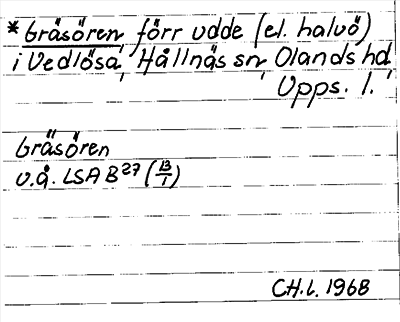 *Gräsören, förr udde (el. halvö)
i Vedlösa, Hållnäs sn, Olands hd,
Upps. l.
Gräsören
u.å. LSA B27 (13/1)
CH.L. 1968